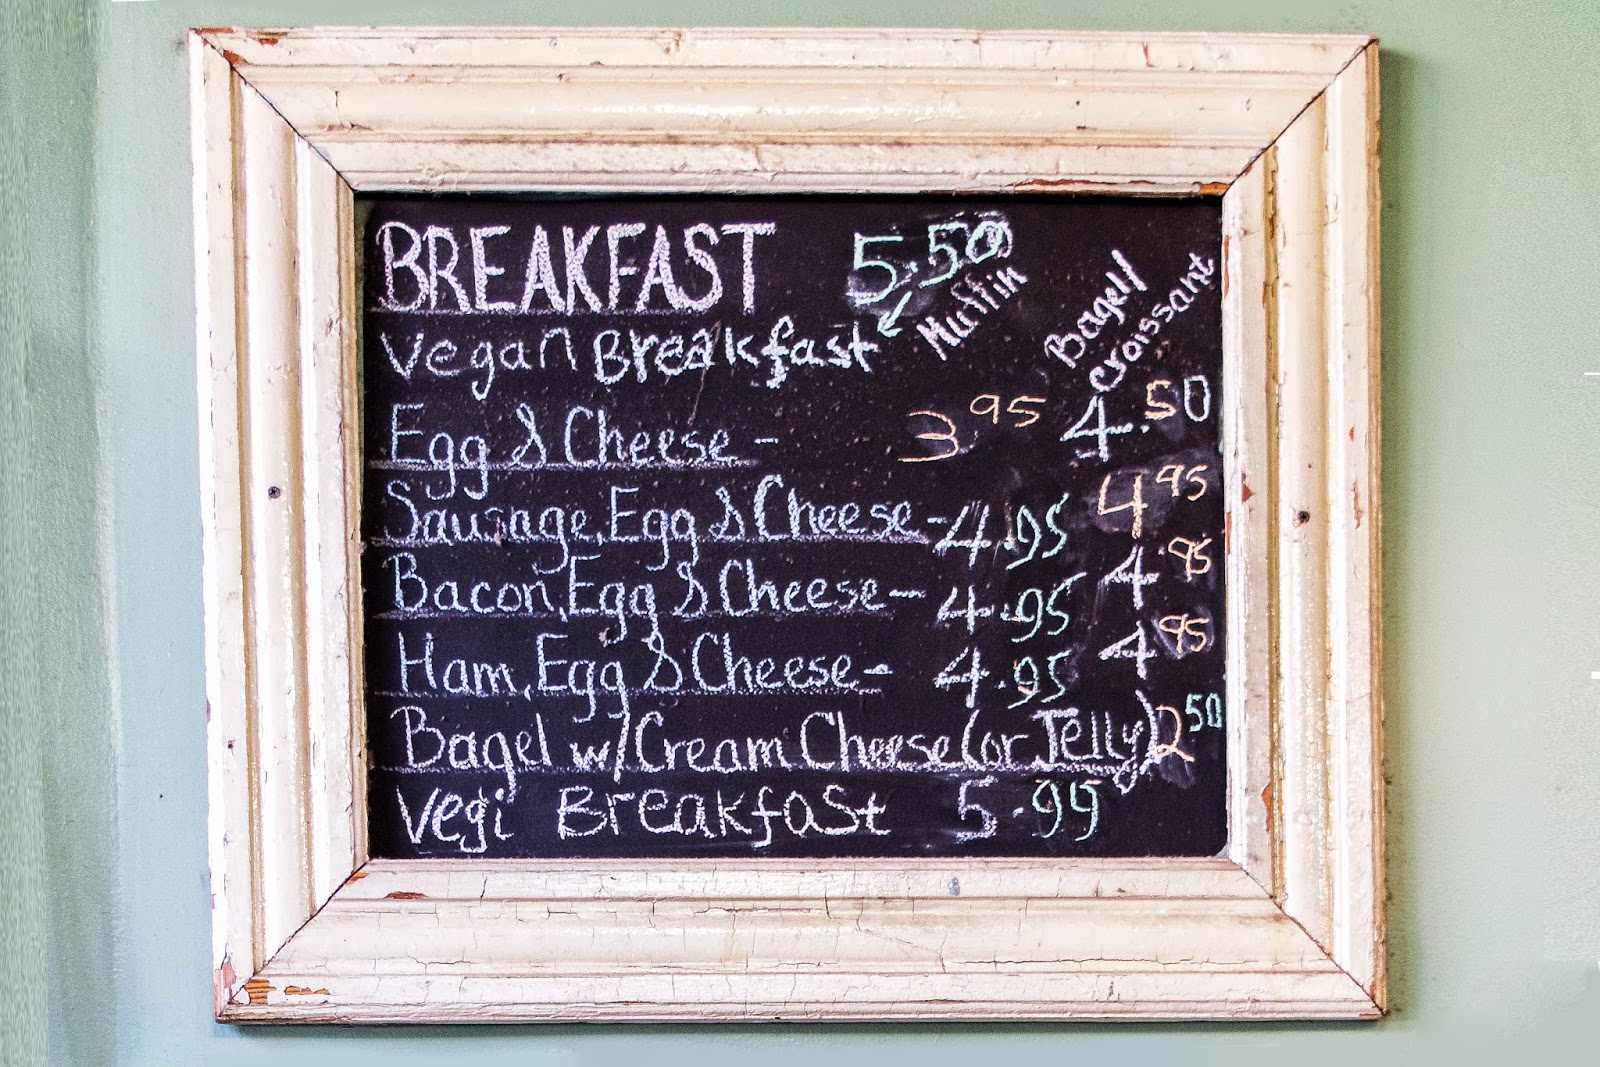 BREAKFAST 5.50
Vegan Breakfast Muffin Bagel/
Croissant
Egg & Cheese - 3.95 4.50
Sausage, Egg & Cheese - 4.95 4.95
Bacon, Egg & Cheese - 4.95 4.95
Ham, Egg & Cheese - 4.95 4.95
Bagel w/ Cream Cheese (or Jelly) 2.50
Vegi Breakfast 5.99